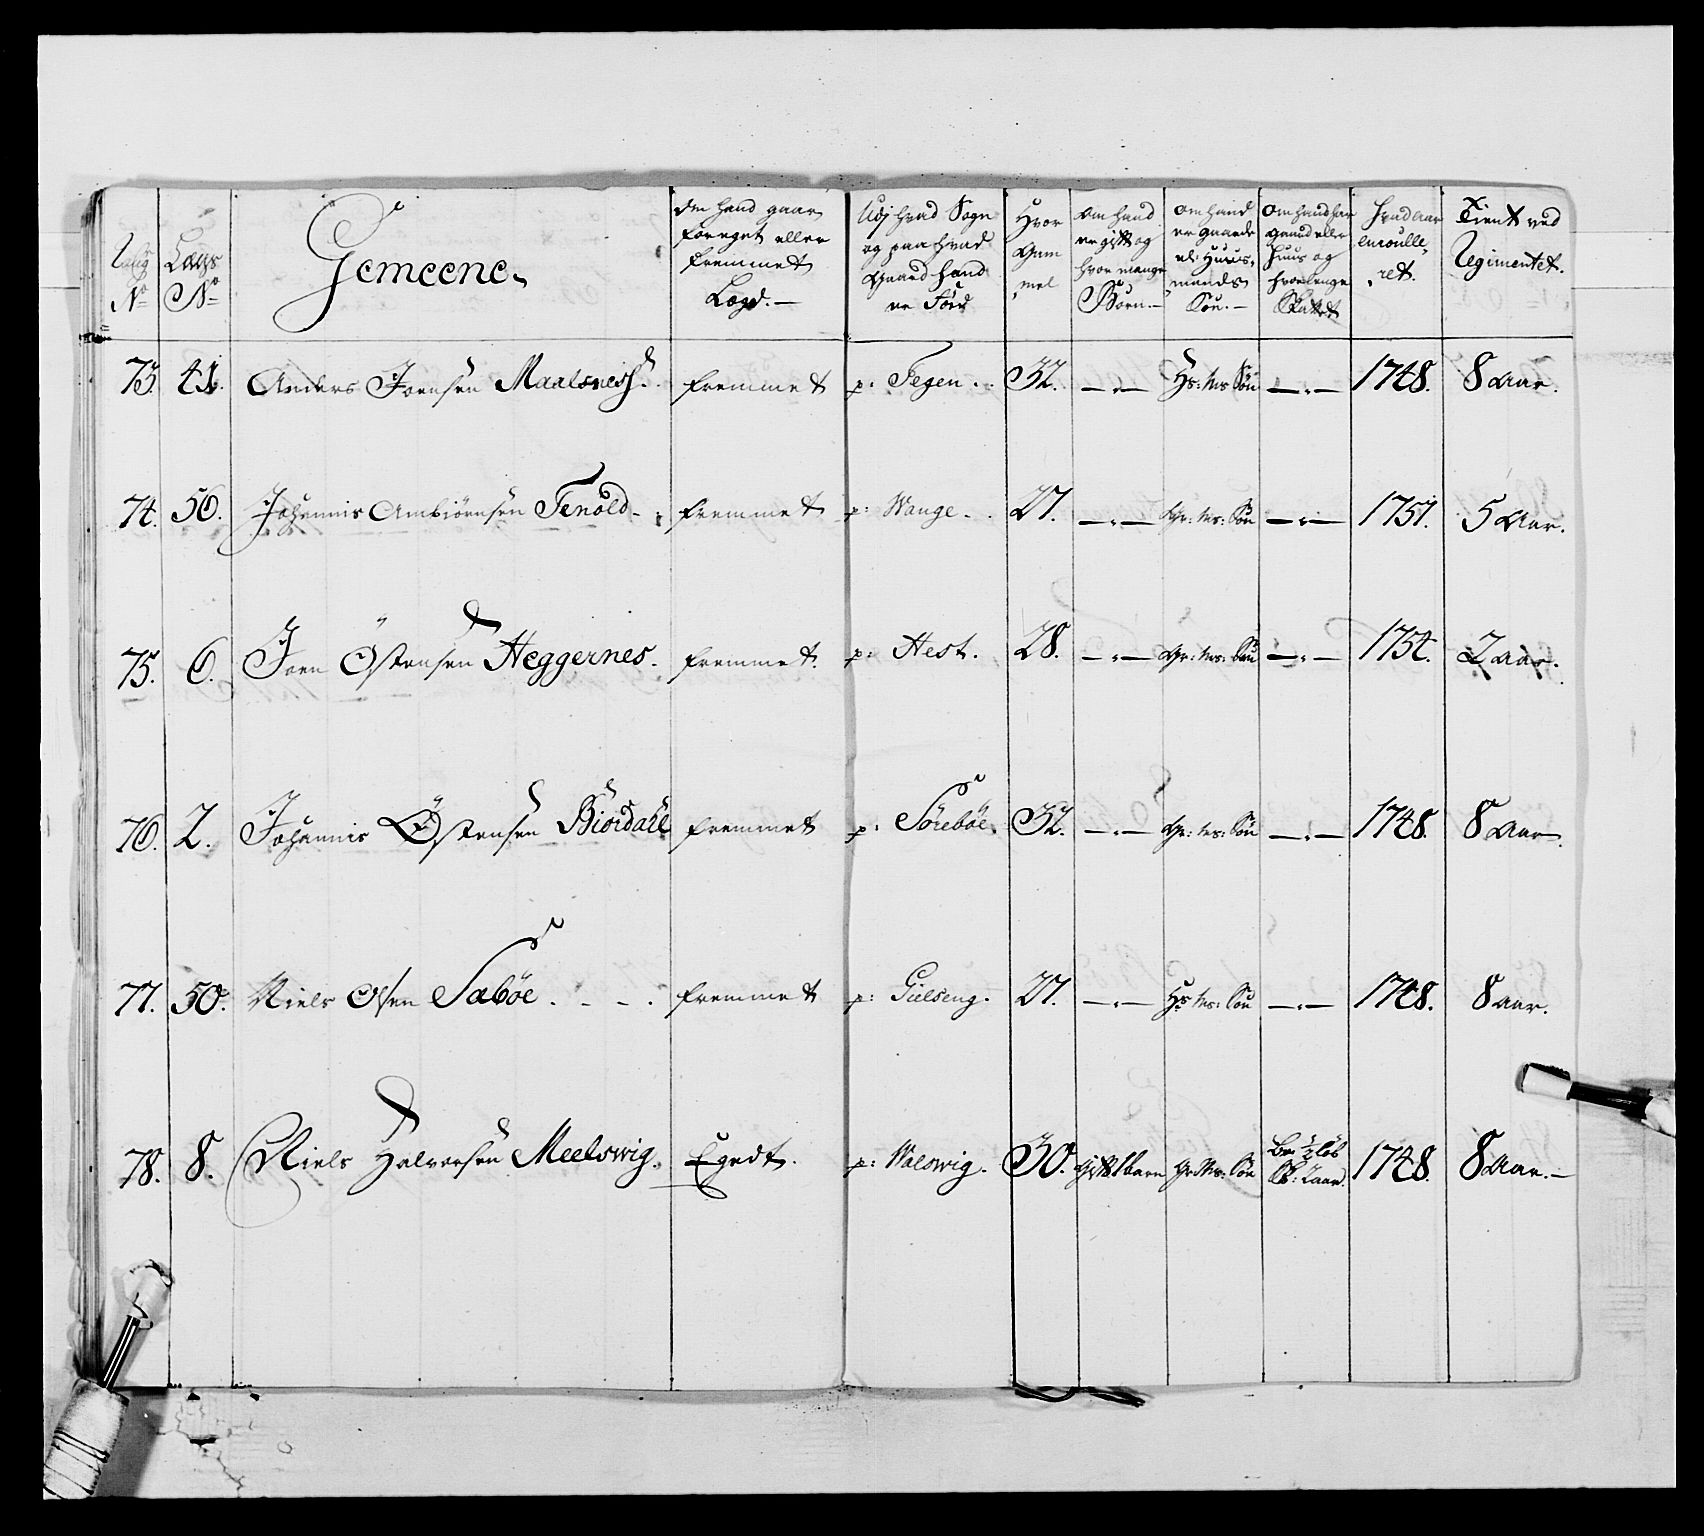 Rang
No
Lægs
No
Gemeene.
Om hand gaar
foreget eller
fremmet
Lægd.—
Udj hvad Sogn
og paa hvad
Gaard hand
er Född
Hvor
Gam
mel
om hand
er gift og
hvor mange
Børn.—
om hand
er gaards
el: Huus-
mands
Søn.—
om hand har
gaard eller
huus og
hvor lenge
Skattet
hvad aar
enroulle-
ret.
Tient ved
Regimentet.
73. 41. Anders Joensen Maalsnes. fremmet p: Fegen. 32. —.— Hs: Ms Søn —.— 1748. 8 Aar.
74. 56. Johannis Ambiörnsen Tenold. fremmet p: Wange. 27. —.— Gr: Ms: Søn —.— 1751. 5 Aar.
75. 6. Joen Östensen Heggernes. fremmet. p: Hest. 28. —.— Gr: Ms: Søn —.— 1754. 2 Aar.
76. 2. Johannis Östensen Biördahl fremmet p: Söreböe. 32. —.— Gr: Ms: Søn —.— 1748. 8 Aar.
77. 50. Niels Olsen Saböe. fremmet p: Gielseng. 27. —.— Hs Ms: Søn —.— 1748. 8 Aar.
78. 8. Niels Halvorsen Meelswig. Egedt. p: Walswig. 30. gift 1 barn Gr Ms: Søn Br: ½ löb Sk: 2 aar. 1748. 8 Aar.—